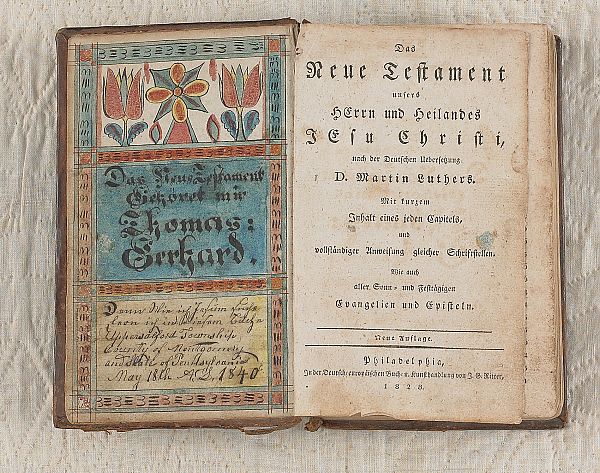 Das Neue Testament
Gehöret mir
Thomas:
Gerhard.
Denn Wie ich Jesum
in diesem
Township
County of Montgomery
and State of Pennsylvania
May 18th A.D. 1840
Das
Neue Testament
unsers
HErrn und Heilandes
JEsu Christi,
nach der Deutschen Uebersetzung
D. Martin Luthers.
Mit kurzem
Inhalt eines jeden Capitels,
und
vollständiger Anweisung gleicher Schriftstellen.
Wie auch
aller Sonn- und Festtägigen
Evangelien und Episteln.
Neue Auflage.
Philadelphia,
In der Deutsch-europäischen Buch- u. Kunsthandlung von J. G. Ritter,
1828.